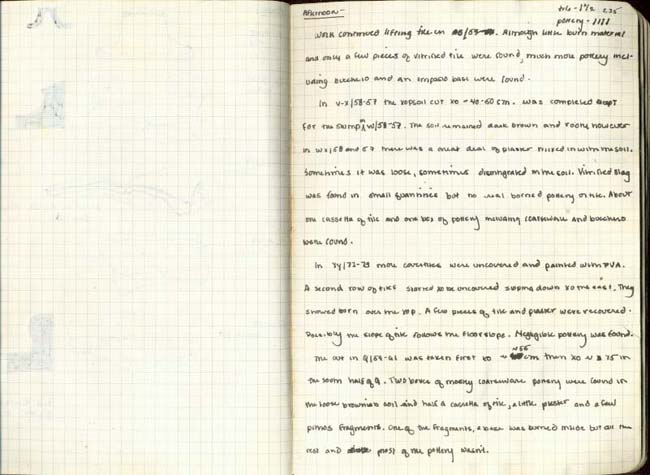 Afternoon - tile - 1 1/2 235
pottery - IIII
Work continued lifting tile in /59. Although little burn material
and only a few pieces of vitrified tile were found, much more pottery incl-
uding bucchero and an impasto base were found.
In v-x/58-57 the topsoil cut to -40-60 cm. was completed except
for the stump in w/58-57. The soil remained dark brown and rooty, however
in wx/58 and 57 there was a great deal of plaster mixed in with the soil.
Sometimes it was loose, sometimes disintegrated in the soil. Vitrified slag
was found in small quantities but no real burned pottery or tile. About
one cassetta of tile and one box of pottery including coarseware and bucchero
were found.
In 3y/72-73 more were uncovered and painted with PVA.
A second row of tiles started to be uncovered sloping down to the east. They
showed burn over the top. A few pieces of tile and plaster were recovered.
Possibly the slope of tile follows the floor slope. Negligible pottery was found.
The cut in was taken first to ~55 cm then to ~ 75 in
the south half of q. Two boxes of mostly coarseware pottery were found in
the loose brownish soil and half a cassetta of tile, a little plaster and a few
pithos fragments. One of the fragments, a base was burned inside but all the
rest and most of the pottery wasn't.